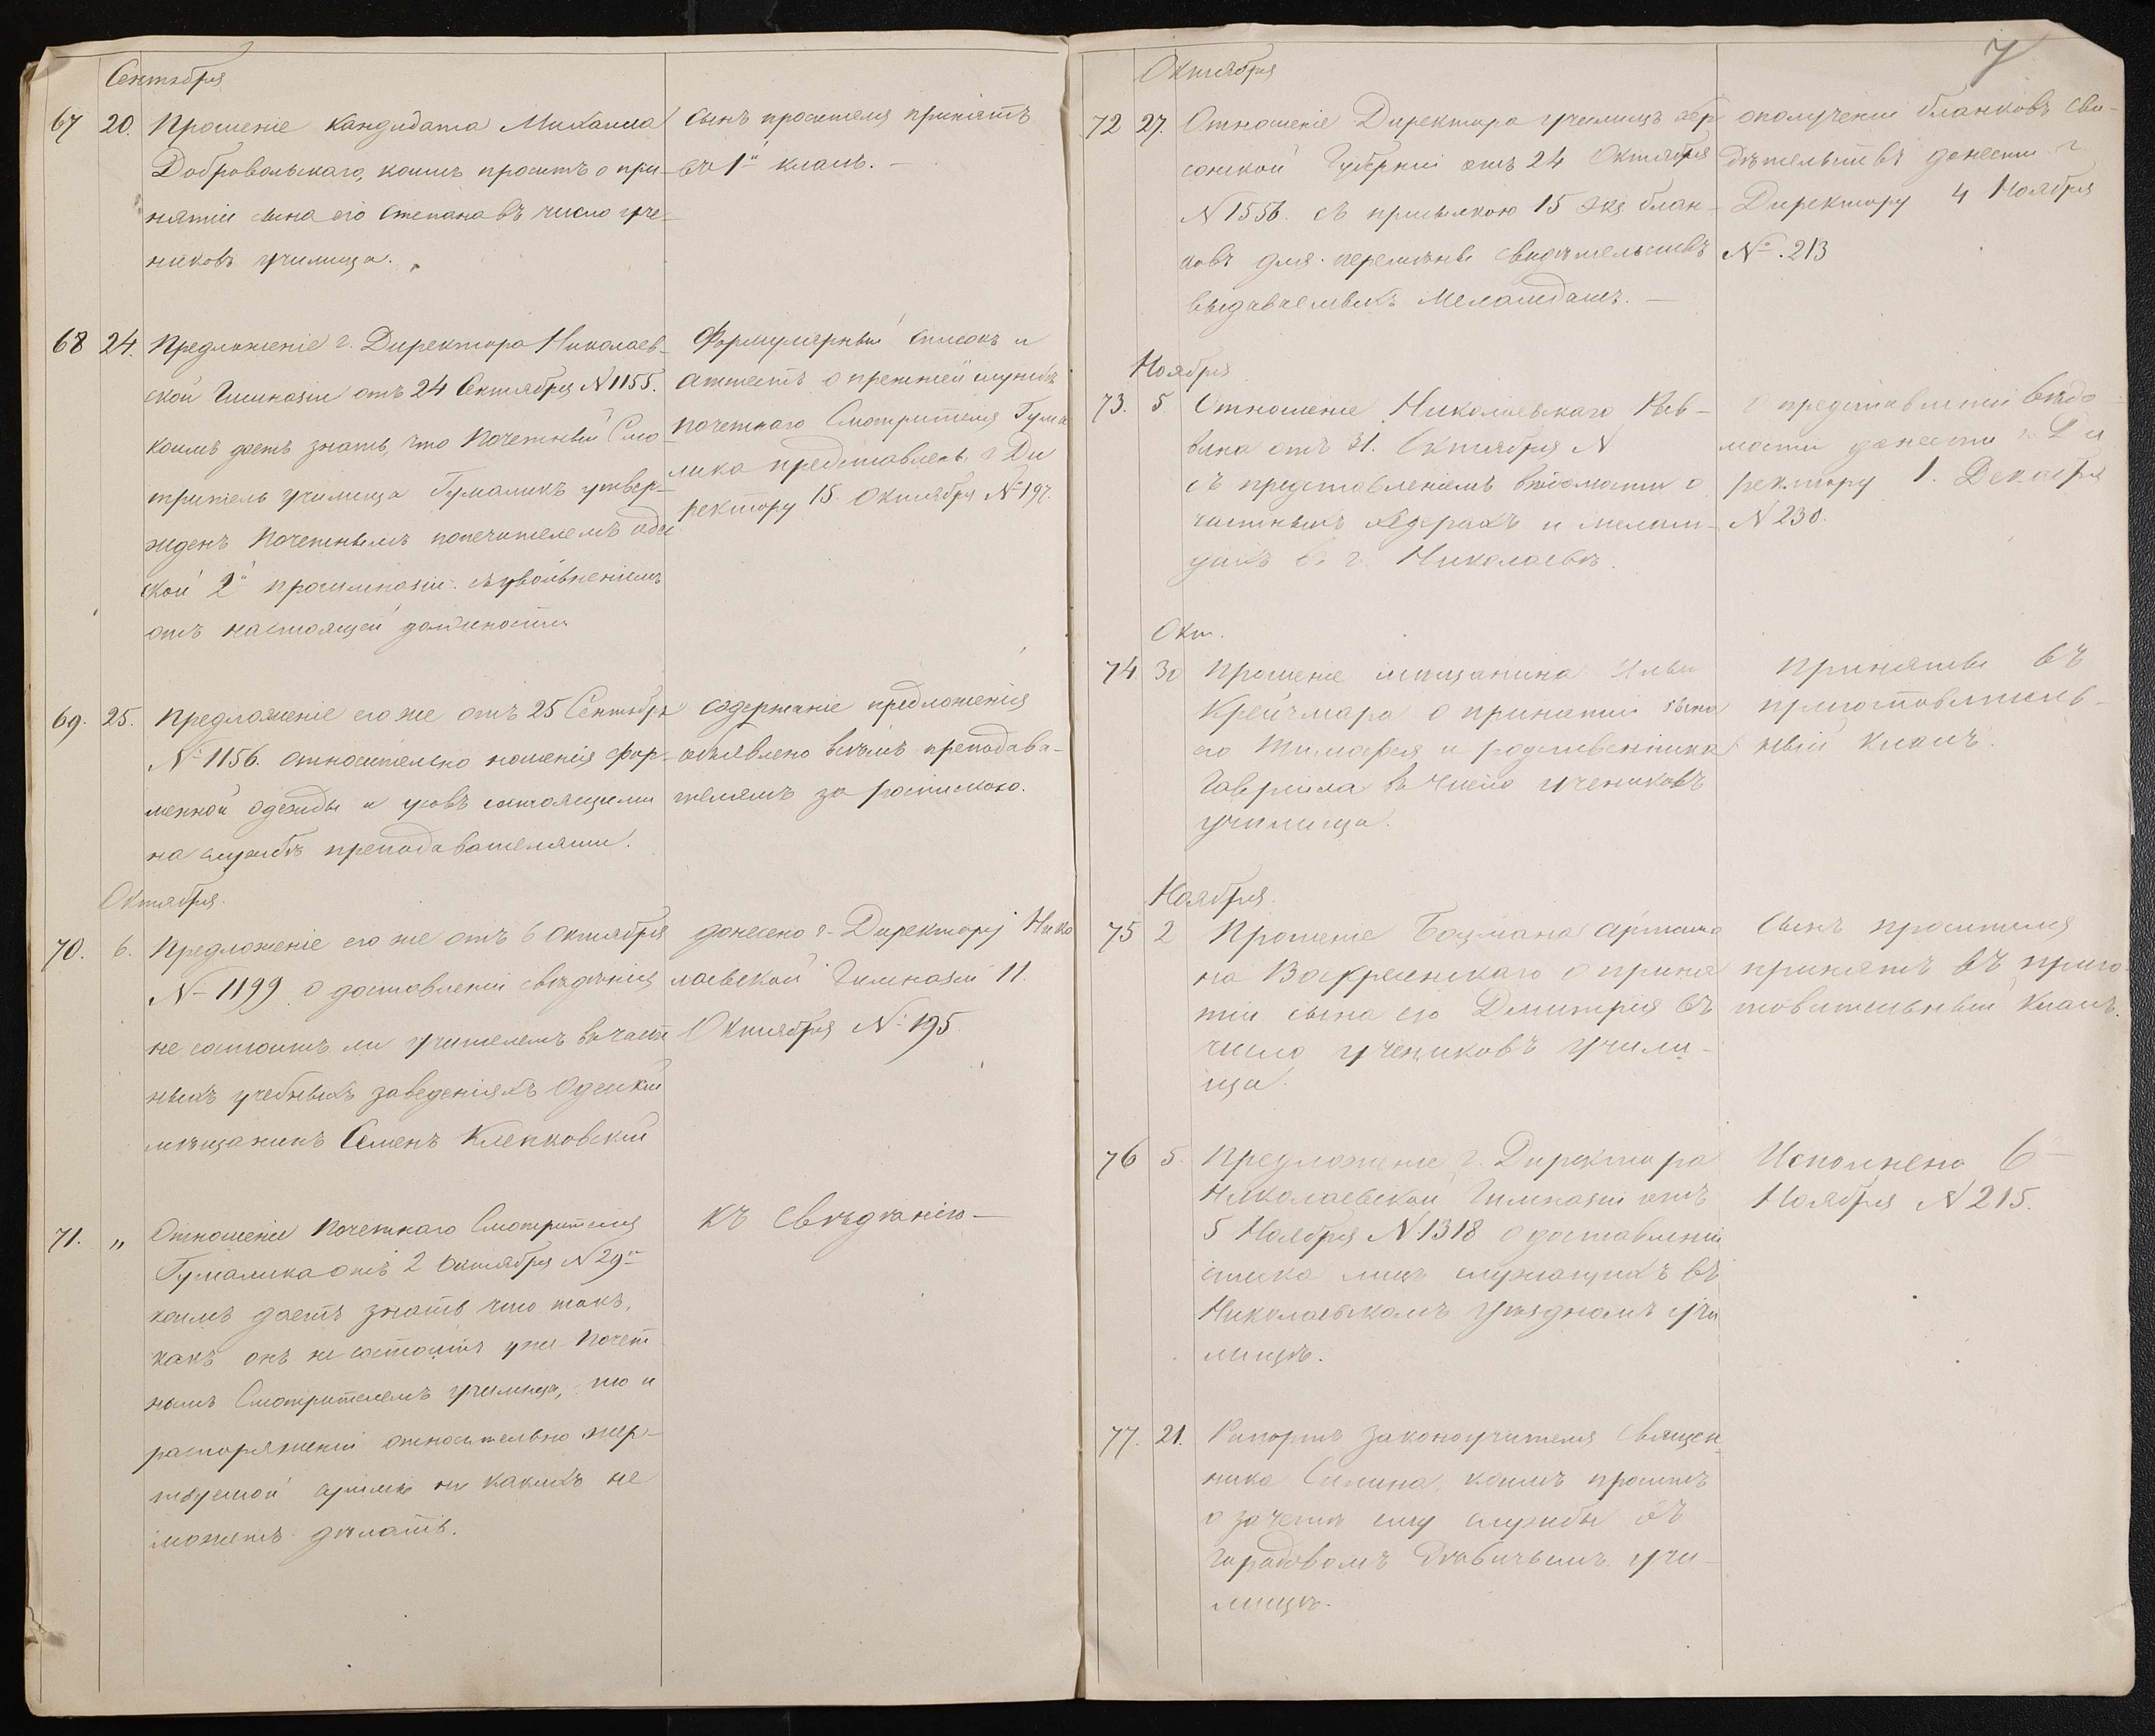 Сентября
67 20. Прошеніе кандидата Михаила
Добровольскаго, коимъ проситъ о при-
нятіи сына его Степана въ число уче-
никовъ училища.
Сынъ просителя принятъ
въ 1й классъ. —
68 24. Предложеніе г. Директора Николаев-
ской Гимназіи отъ 24 Сентября N 1155.
коимъ даетъ знать, что Почетный Смо-
тритель училища Гумаликъ утвер-
жденъ Почетнымъ попечителемъ Одес
ской 2й прогимназіи съ увольненіемъ
отъ настоящей должности
Формулярный списокъ и
аттестъ о прежней службѣ
почетнаго Смотрителя Гума
лика представленъ г. Ди
ректору 15 Октября № 197.
69. 25. Предложеніе его же отъ 25 Сентября
№ 1156. относительно ношенія фор-
менной одежды и усовъ состоящими
на службѣ преподавателями.
Содержаніе предложенія
объявлено всѣмъ преподава-
телямъ за роспискою.
Октября.
70. 6. Предложеніе его же отъ 6 Октября
№ 1199 о доставленіи свѣдѣнія
не состоитъ ли учителемъ въ част
ныхъ учебныхъ заведеніяхъ Одесскій
мѣщанинъ Семенъ Клепковскій
донесено г. Директору Нико
лаевской Гимназіи 11.
Октября № 195.
71. „ Отношеніе Почетнаго Смотрителя
Гумалика отъ 2 Октября N 29
коимъ даетъ знать что такъ,
какъ онъ не состоитъ уже Почет
нымъ Смотрителемъ училища, то и
распоряженій относительно жер-
твуемой суммы ни какихъ не
можетъ дѣлать.
Къ свѣдѣнію —
7
Октября
72 27. Отношеніе Директора училищъ Хер
сонской Губерніи отъ 24 Октября
N 1556. съ присылкою 15 экз. блан-
ковъ для перемѣны свидѣтельствъ
выдаваемыхъ Меламедамъ. —
о полученіи бланковъ сви-
дѣтельствъ донесено г
Директору 4 Ноября
№. 213
Ноября
73. 5. Отношеніе Николаевскаго Рав-
вина отъ 31. Октября N
съ представленіемъ вѣдомости о
частныхъ хедерахъ и мелам-
дахъ въ г. Николаевѣ.
О представленіи вѣдо
мости донесено г. Ди
ректору 1. Декабря
N 230.
Окт.
74. 30 Прошеніе мѣщанина Ильи
Крейчмара о принятіи сына
его Тимофея и родственника
Гавріила въ число учениковъ
училища.
Приняты въ
приготовитель-
ный классъ.
Ноября.
75 2 Прошеніе Боцмана
на Воскресенскаго о приня
тіи сына его Дмитрія въ
число учениковъ учили-
ща.
Сынъ просителя
принятъ въ приго-
товительный классъ.
76 5. Предложеніе г. Директора
Николаевской Гимназіи отъ
5 Ноября N 1318 о доставленіи
списка лицъ служащихъ въ
Николаевскомъ Уѣздномъ учи
лищѣ.
Исполнено 6
Ноября N 215.
77. 21. Рапортъ законоучителя Священ-
ника Силина, коимъ проситъ
о зачетѣ ему службы въ
Городовомъ Дѣвичьемъ учи-
лищѣ.